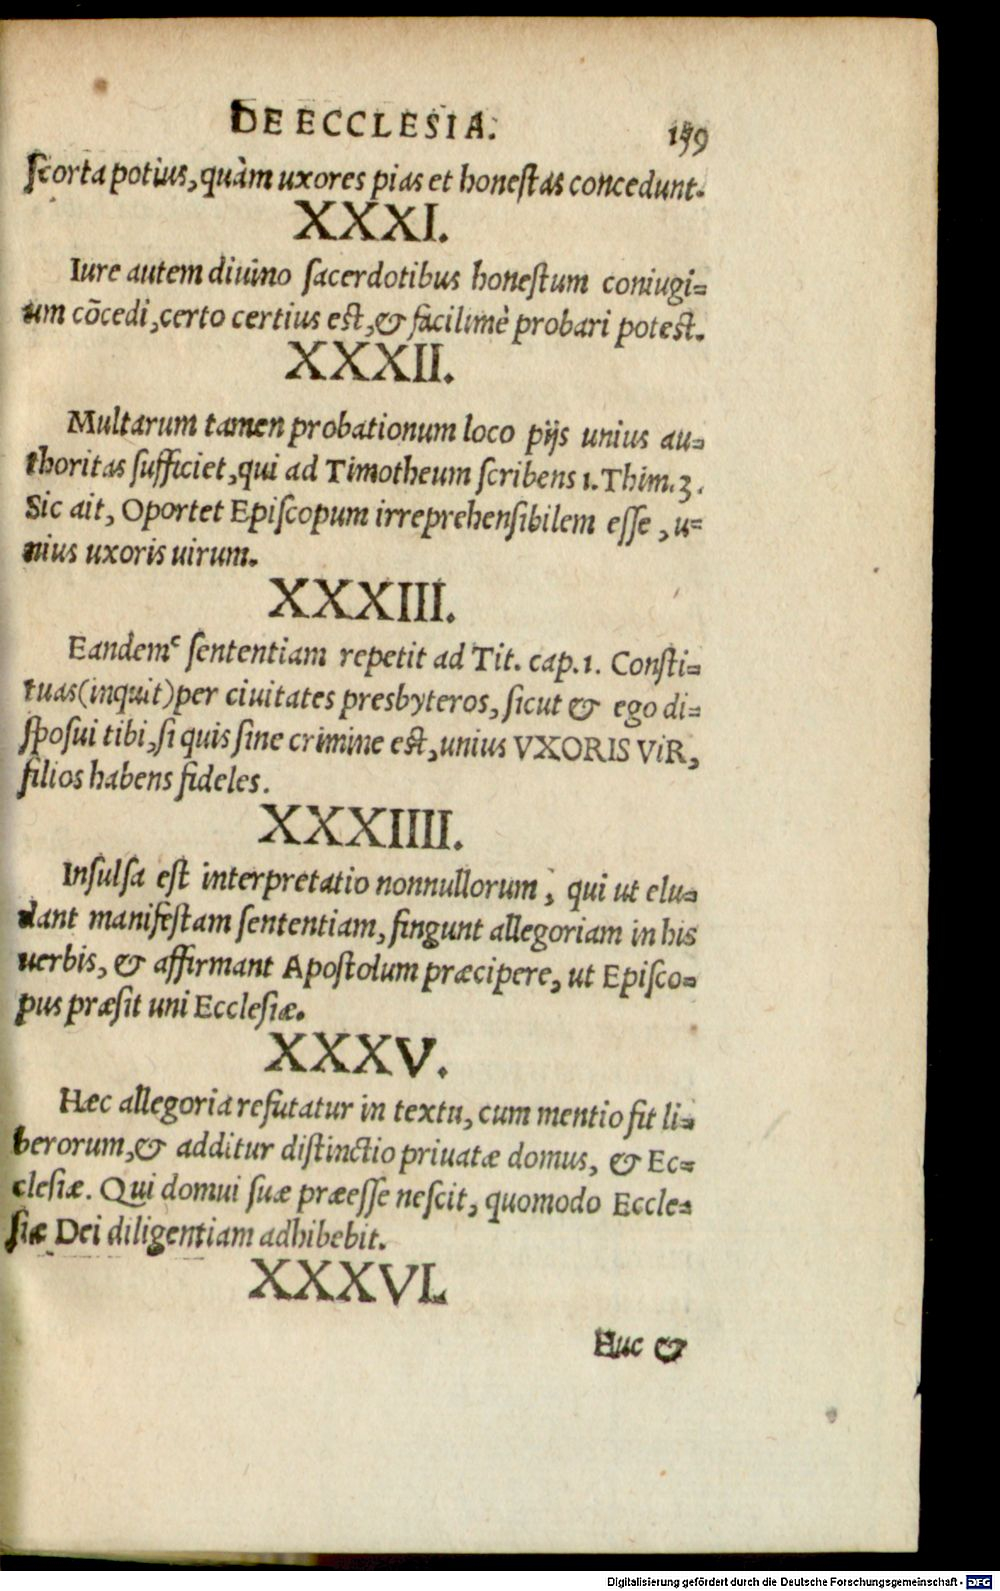 DE ECCLESIA. 159
scorta potius, quàm uxores pias et honestas concedunt.
XXXI.
Iure autem diuino sacerdotibus honestum coniugi=
um cōcedi, certo certius est, & facilimè probari potest.
XXXII.
Multarum tamen probationum loco pijs unius au=
thoritas sufficiet, qui ad Timotheum scribens 1. Thim. 3.
Sic ait, Oportet Episcopum irreprehensibilem esse, u=
nius uxoris uirum.
XXXIII.
Eandemᶜ sententiam repetit ad Tit. cap. 1. Consti=
tuas (inquit) per ciuitates presbyteros, sicut & ego di=
sposui tibi, si quis sine crimine est, unius VXORIS ViR,
filios habens fideles.
XXXIIII.
Insulsa est interpretatio nonnullorum, qui ut elu=
dant manifestam sententiam, fingunt allegoriam in his
uerbis, & affirmant Apostolum præcipere, ut Episco=
pus præsit uni Ecclesiæ.
XXXV.
Hæc allegoria refutatur in textu, cum mentio fit li=
berorum, & additur distinctio priuatæ domus, & Ec=
clesiæ. Qui domui suæ præesse nescit, quomodo Eccle=
siæ Dei diligentiam adhibebit.
XXXVI.
Huc &
Digitalisierung gefördert durch die Deutsche Forschungsgemeinschaft - DFG